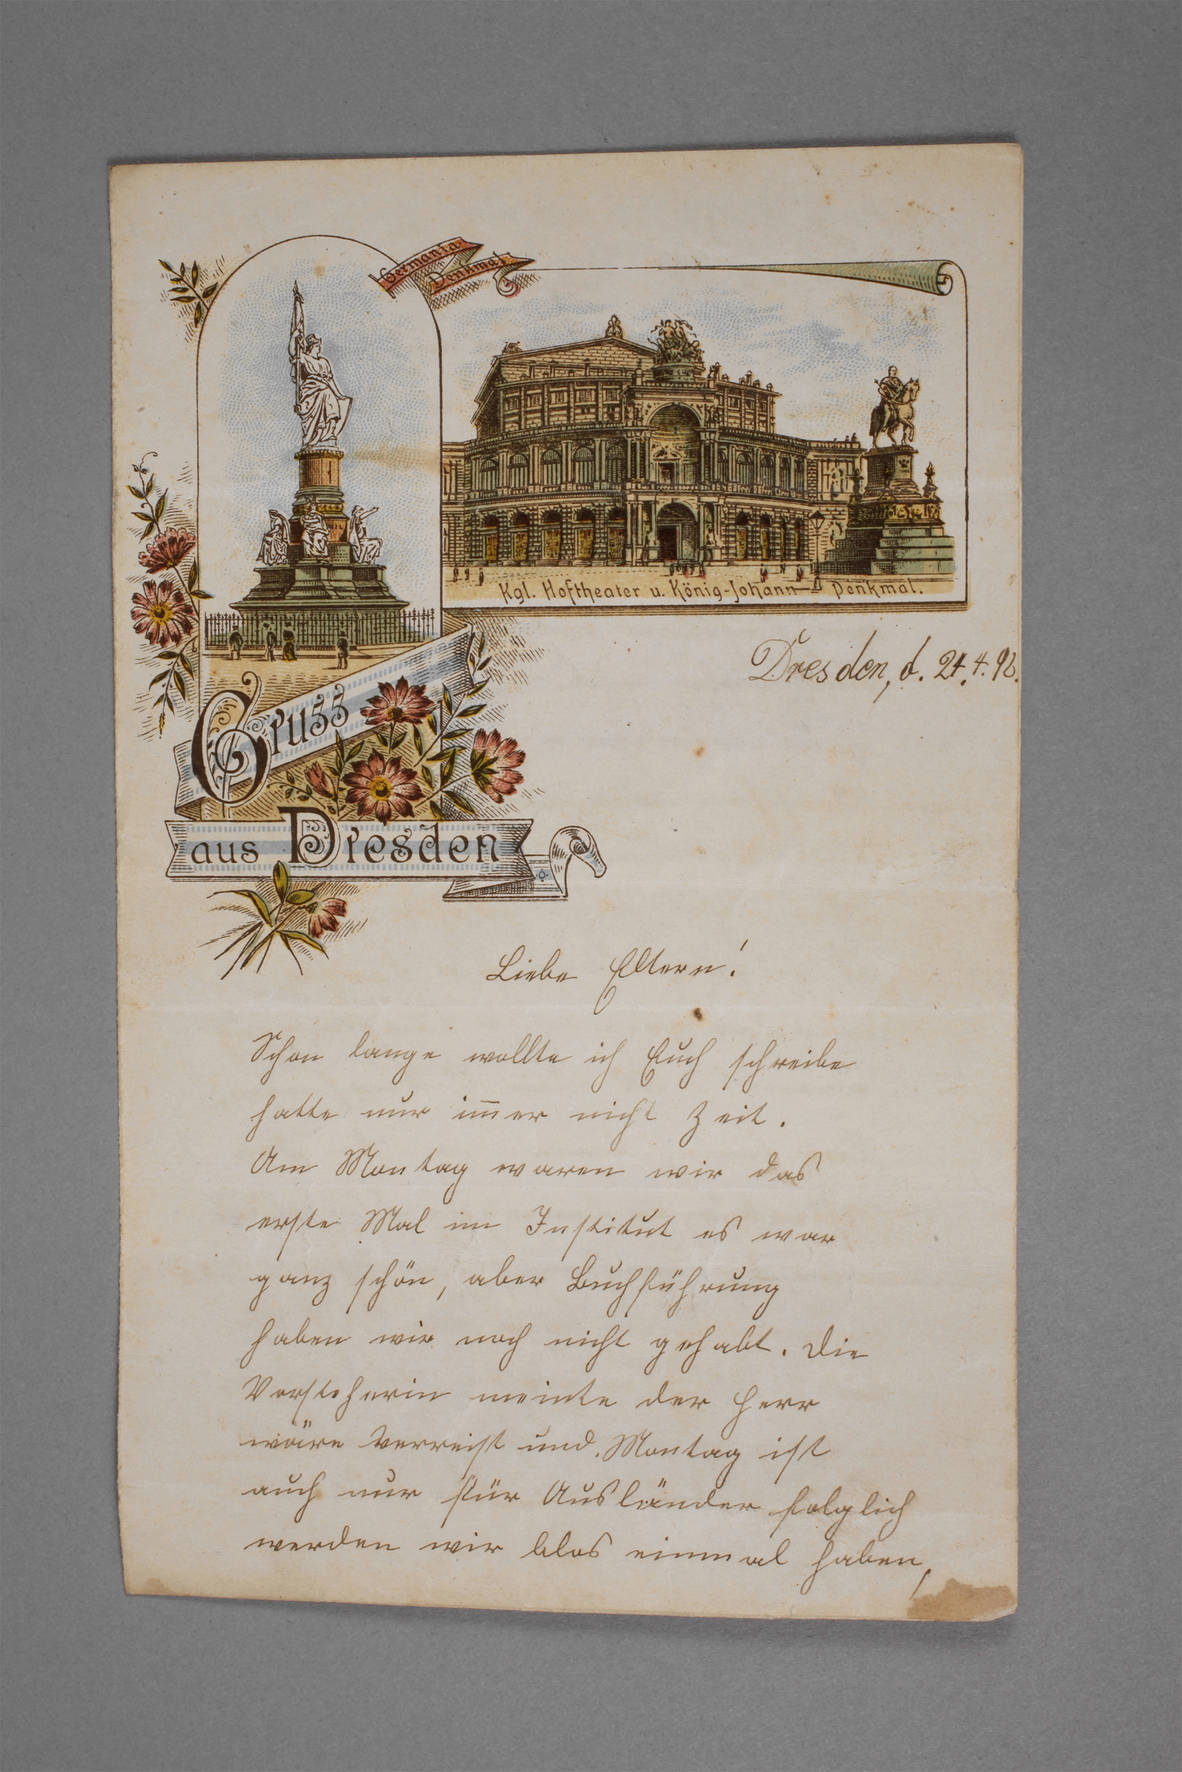 Germania-
Denkmal.
Kgl. Hoftheater u. König-Johann-Denkmal.
Dresden, d. 24.4.98.
Gruss
aus Dresden
Liebe Eltern!
Schon lange wollte ich Euch schreibe
hatte nur im̅er nicht Zeit.
Am Montag waren wir das
erste Mal im Institut es war
ganz schön, aber Buchführung
haben wir noch nicht gehabt. Die
Vorsteherin meinte der Herr
wäre verreist und Montag ist
auch nur für Ausländer folglich
werden wir blos einmal haben,